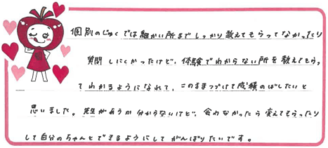 個別のじゅくでは細かい所までしっかり教えてもらってなかったり
質問しにくかったけど、体験でわからない所を教えてもらって
わかるようになれて、このままつづけて成績のばしたいと
思いました。先生があうか分からないけど、合わなかったら変えてもらったり
して自分のちゃんとできるようにしてがんばりたいです。